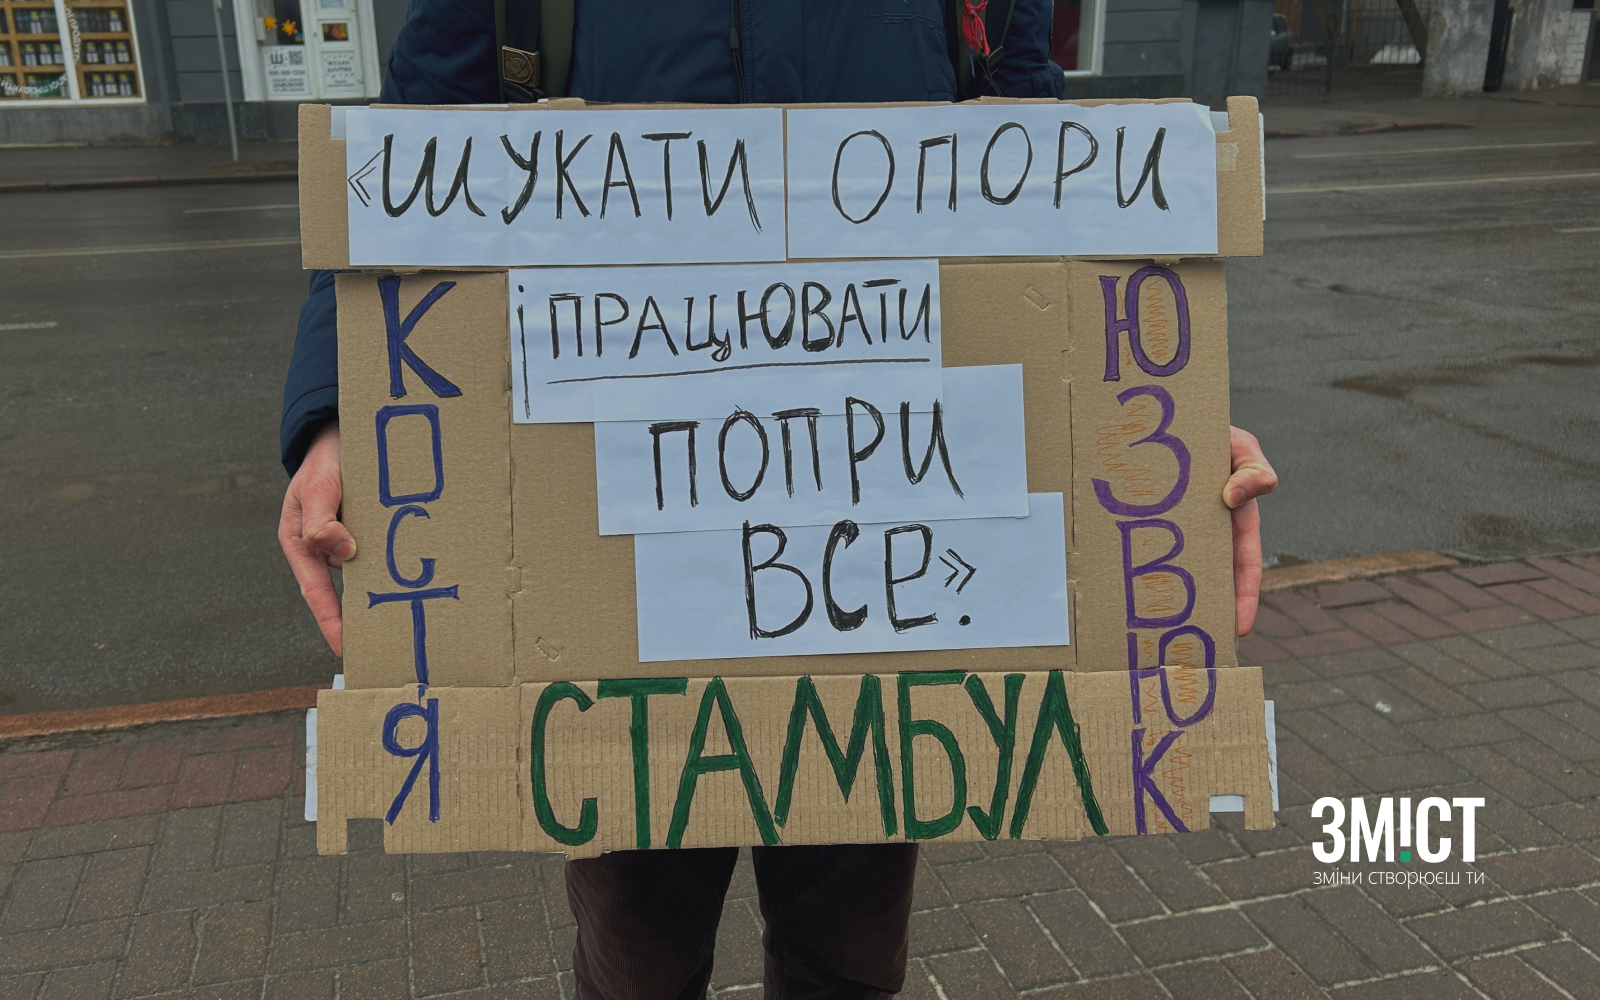 «ШУКАТИ ОПОРИ
і ПРАЦЮВАТИ
ПОПРИ
ВСЕ».
КОСТЯ
ЮЗВЮК
СТАМБУЛ
ЗМІСТ
ЗМІНИ СТВОРЮЄШ ТИ